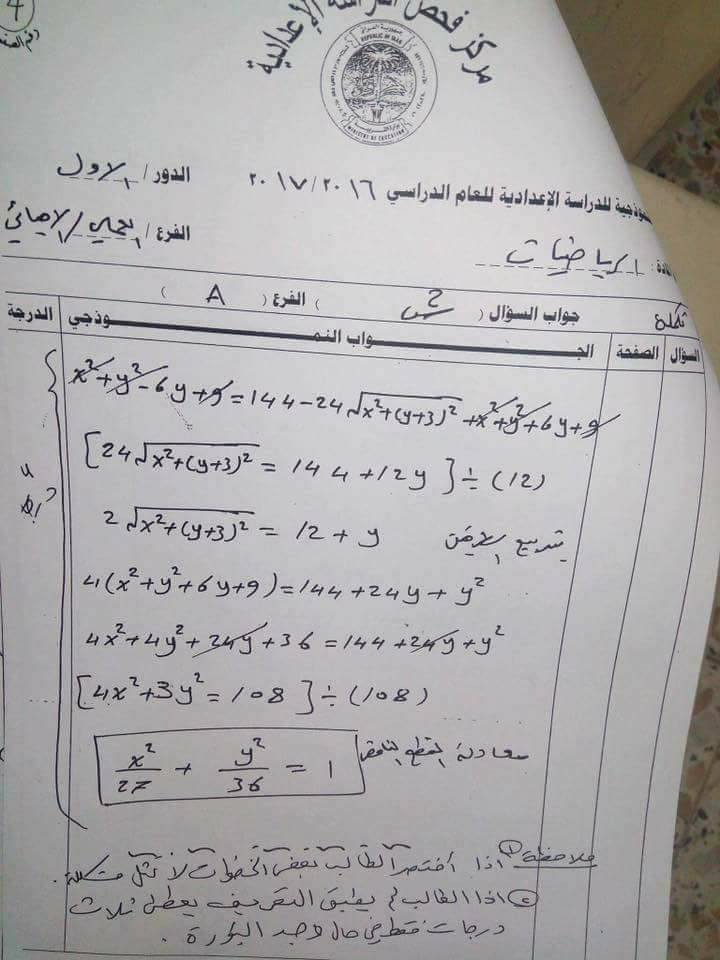 4
مركز فحص الدراسة الإعدادية
REPUBLIC OF IRAQ
MINISTRY OF EDUCATION
الدور / الاول
للدراسة الإعدادية للعام الدراسي ٢٠١٦ / ٢٠١٧
الفرع /
الرياضيات
تكملة جواب السؤال ( س2 ) الفرع ( A )
السؤال الصفحة الجـــواب النمـــوذجي الدرجة
x²+y²-6y+9=144-24√x²+(y+3)²+x²+y²+6y+9
[24√x²+(y+3)² = 144+12y] ÷ (12)
2√x²+(y+3)² = 12+y بتربيع الطرفين
4(x²+y²+6y+9)=144+24y+y²
4x²+4y²+24y+36=144+24y+y²
[4x²+3y²=108] ÷ (108)
x²/27 + y²/36 = 1 معادلة القطع الناقص
ملاحظة ① اذا اختصر الطالب بعض الخطوات لا تمثل مشكلة.
② اذا الطالب لم يطبق التعريف يعطى ثلاث
درجات فقط في حال وجد البؤرة .